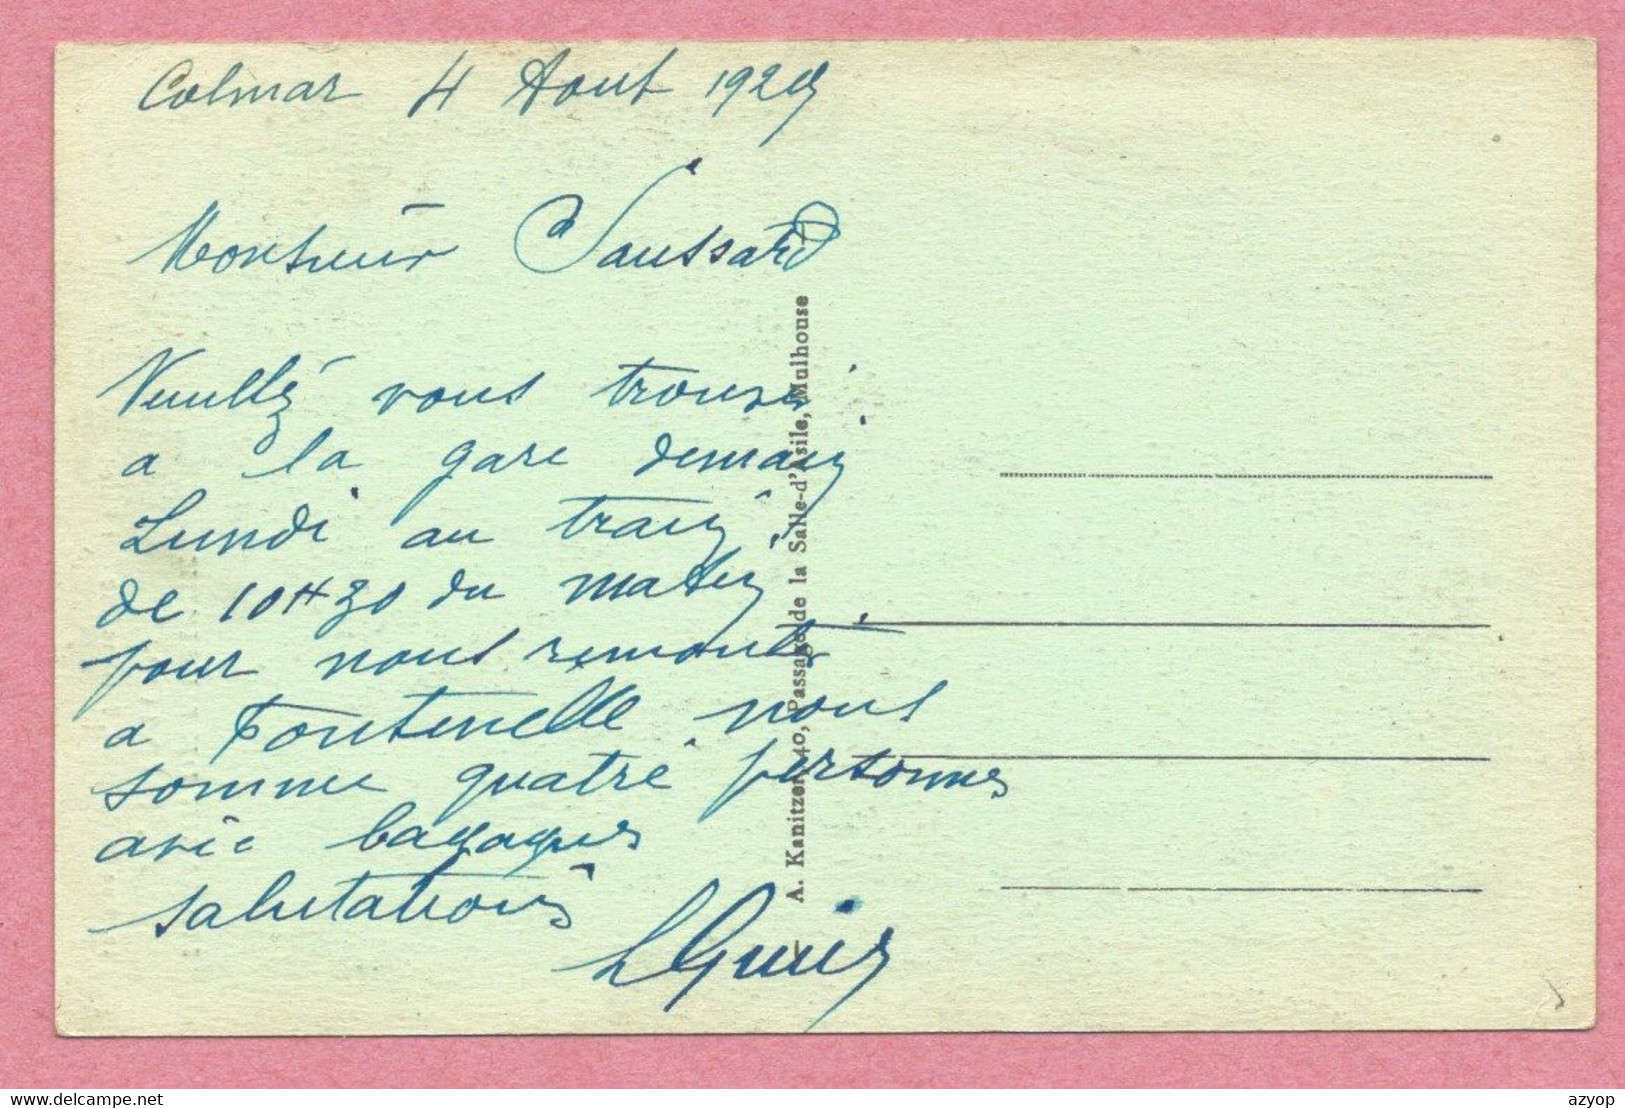 Colmar 4 Aout 1929
Monsieur Saussard
Veuillé vous trouver
a la gare demain
Lundi au train
de 10H30 du matin
pour nous remonter
a Fontenelle nous
somme quatre personnes
avec bagages
salutations
A. Kanitzer, 40, Passage de la Salle-d'Asile, Mulhouse
azyop